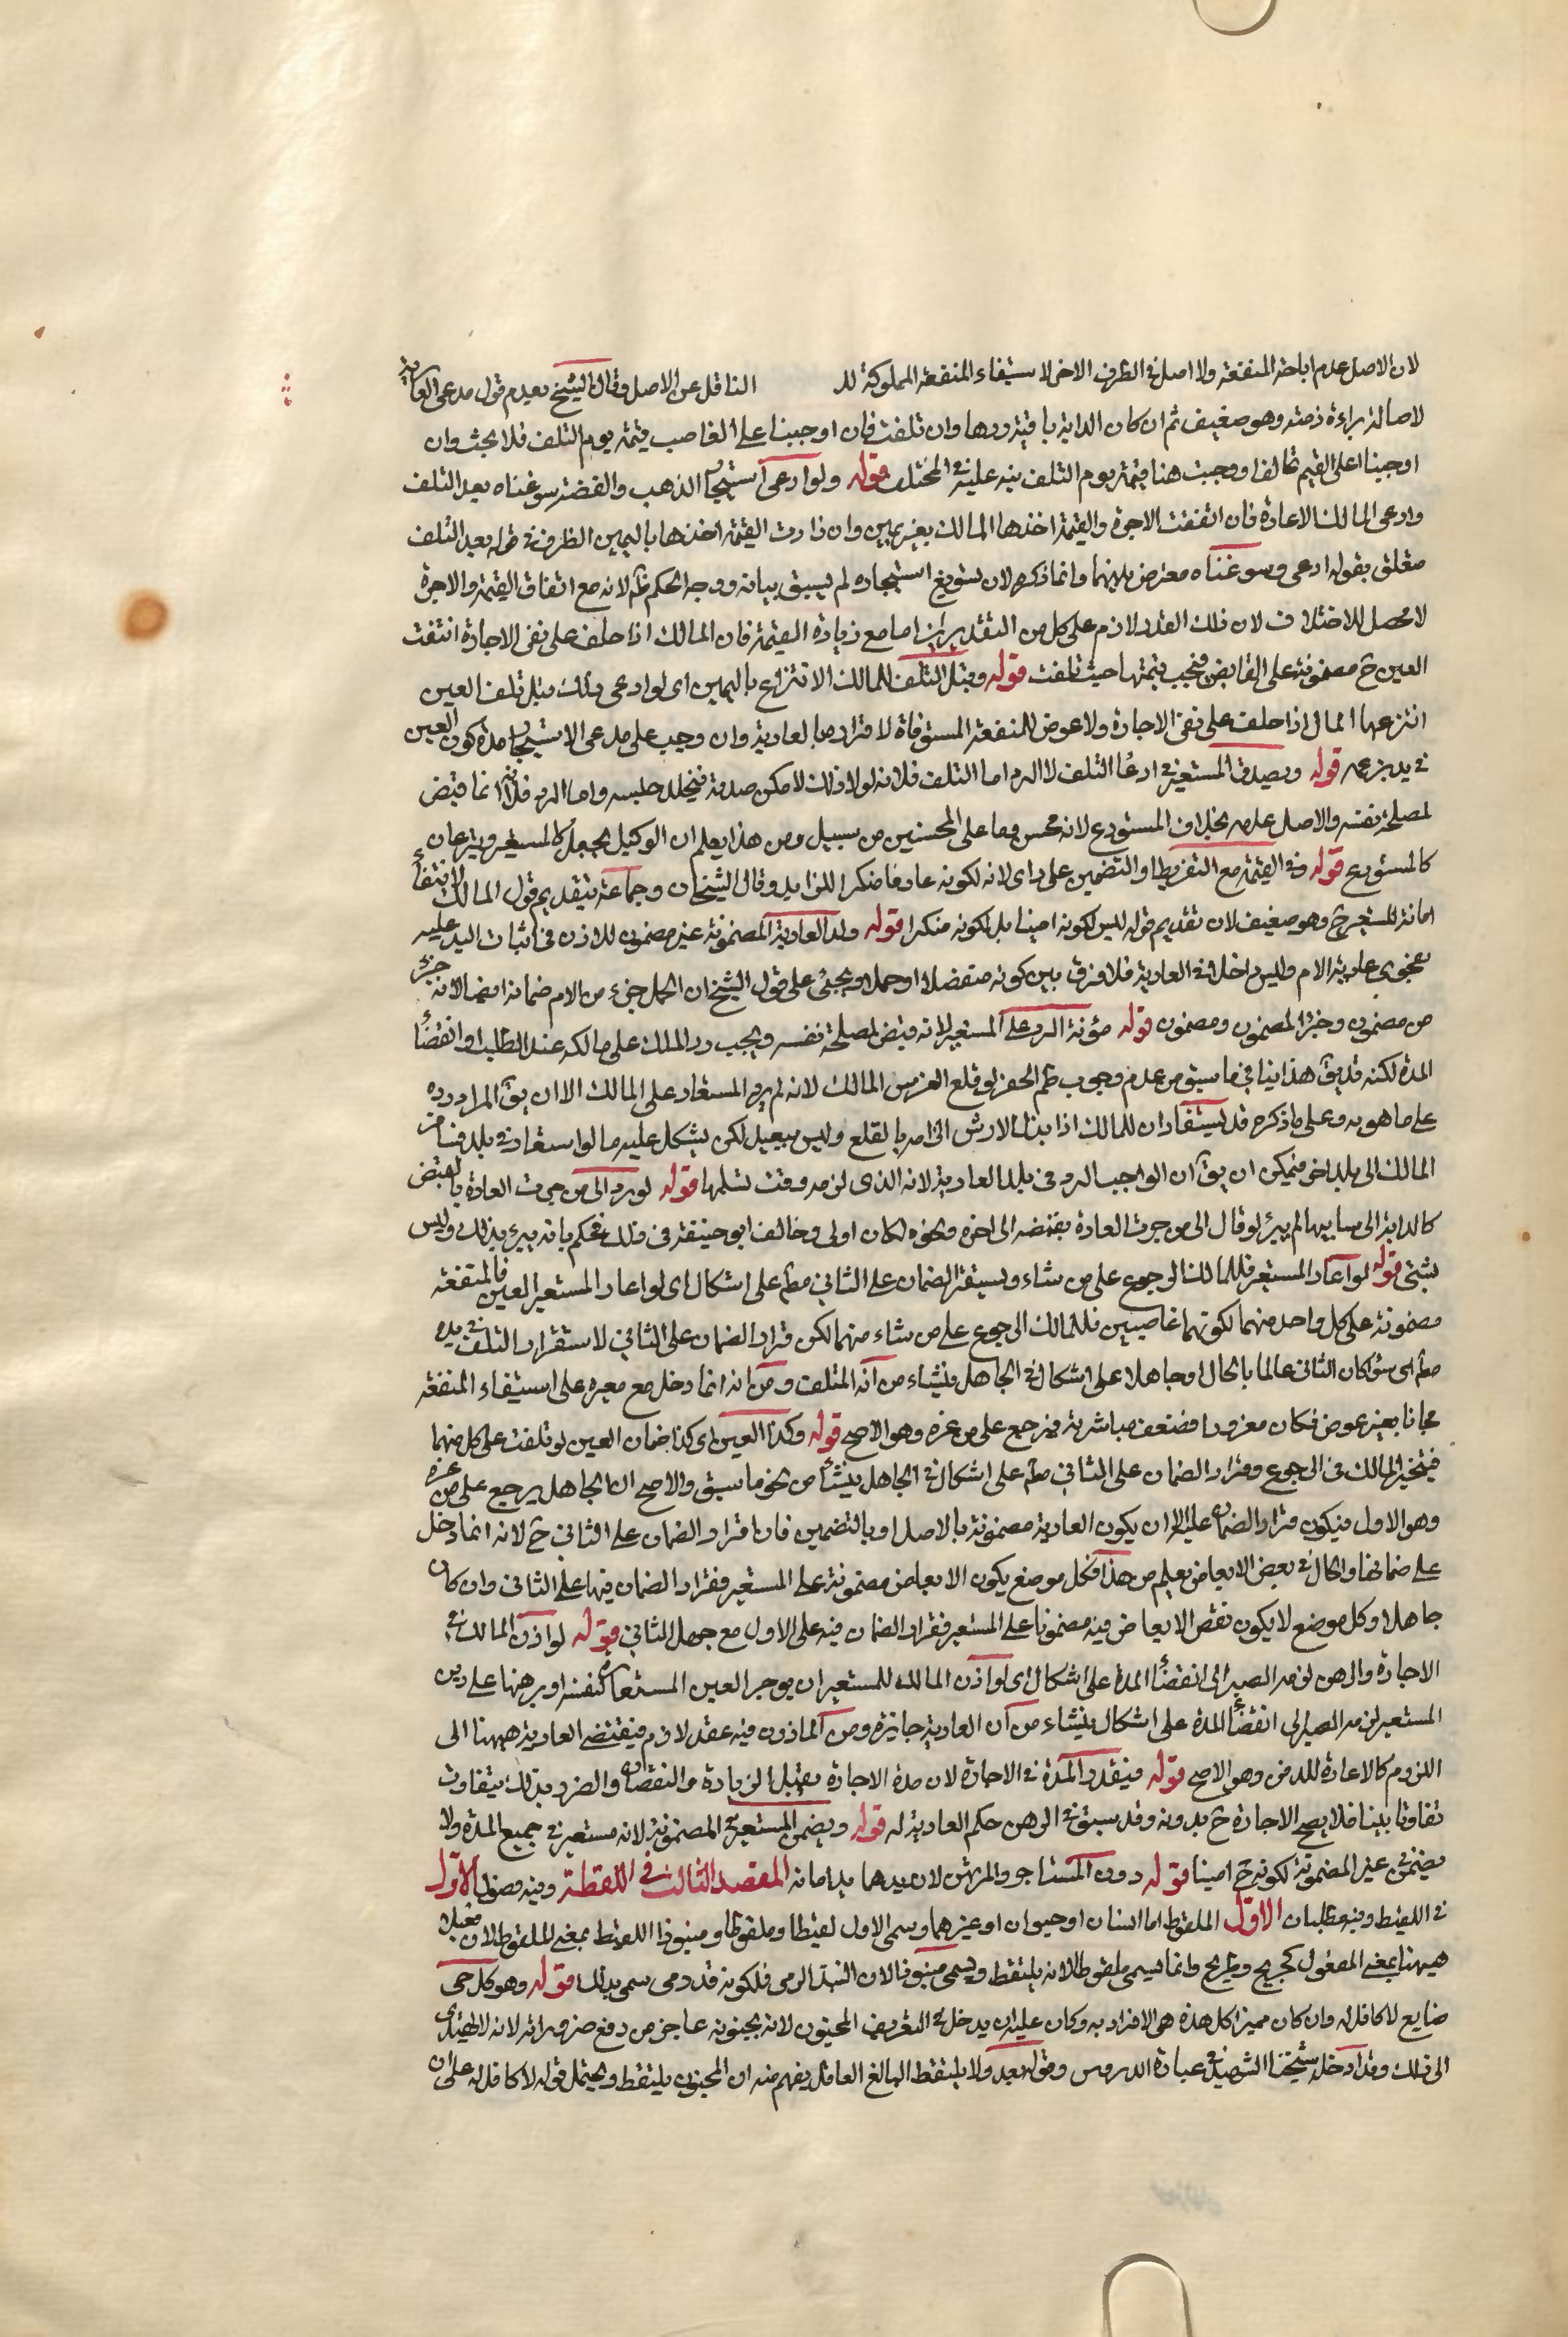 لان الاصل عدم اباحة المنفعة ولا اصل فى الطرف الاخر لاستيفاء المنفعة المملوكة للـ الناقل عن الاصل وقال الشيخ بعدم قول مدعى العارية
لاصالة براءة ذمته وهو ضعيف ثم ان كان الدابة باقية ردها وان تلفت فان اوجبنا على الغاصب قيمة يوم التلف فلا بحث وان
اوجبنا اعلى القيم تحالفا ووجبت هنا قيمة يوم التلف نبه عليه فى المختلف قوله ولو ادعى استيجار الذهب والفضة سوغناه بعد التلف
وادعى المالك الاعارة فان اتفقت الاجرة والقيمة اخذها المالك بغير يمين وان زادت القيمة اخذها باليمين الظرف فى قوله بعد التلف
متعلق بقوله ادعى وسوغناه معترض بينهما وانما ذكره لان تسويغ استيجاره لم يسبق بيانه ووجه الحكم ظ لانه مع اتفاق القيمة والاجرة
لا محصل للاختلاف لان ذلك القدر لازم على كل من التقديرين اما مع زيادة القيمة فان المالك اذا حلف على نفى الاجارة انتفت
العين ح مضمونة على القابض فيجب قيمتها حيث تلفت قوله وقبل التلف للمالك الانتزاع باليمين اى لو ادعى ذلك قبل تلف العين
انتزعها المال اذا حلف على نفى الاجارة ولا عوض للمنفعة المستوفاة لاقراره بالعارية وان وجب على مدعى الاستيجار مدة كون العين
فى يد بزعمه قوله ويصدق المستعير فى ادعا التلف لا الرد اما التلف فلانه لولا ذلك لامكن صدقه فيخلد حبسه واما الرد فلانه انما قبض
لمصلحة نفسه والاصل عدمه بخلاف المستودع لانه محسن وما على المحسنين من سبيل ومن هذا يعلم ان الوكيل بجعل كالمستعير وبتبرعان
كالمستودع قوله وفى القيمة مع التفريط او التضمين على راى لانه لكونه غارما منكرا للزايد وقال الشيخان وجماعة بتقديم قول المالك لانتفاء
امانة المستعير ح وهو ضعيف لان تقديم قوله ليس لكونه امينا بل لكونه منكرا قوله ولد العارية المضمونة غير مضمون للاذن فى اثبات اليد عليه
بفحوى عارية الام وليس داخلا فى العارية فلا فرق بين كونه منفصلا او حملا ويجئ على قول الشيخ ان الحمل جزء من الام ضمانه ايضا لانه جزء
من مضمون وجزء المضمون ومضمون قوله مؤنة الرد على المستعير لانه قبض لمصلحة نفسه ويجب رد الملك على مالكه عند الطلب او انقضأ
المدة لكنه قد يق هذا ينافى ما سبق من عدم وجوب طم الحفر لو قلع الغرس المالك لانه لم يرد المستعار على المالك الا ان يق المراد رده
على ما هو به وعلى ما ذكره قد يستفاد ان للمالك اذا بذل الارش الزامه بالقلع وليس ببعيد لكن يشكل عليه ما لو استعار فى بلد فسافر
المالك الى بلد اخر فيمكن ان يق ان الواجب الرد فى بلد العارية لانه الذى لزمه وقت تسلمها قوله لو رد الى من جرت العادة بالقبض
كالدابة الى سايسها لم يبرئ لو قال الى من جرت العادة بقبضه الى اخره ونحوه لكان اولى وخالف ابو حنيفة فى ذلك فحكم بانه يبرئ بذلك وليس
بشئ قوله لو اعار المستعير فللمالك الرجوع على من شاء ويستقر الضمان على الثانى مطم على اشكال اى لو اعار المستعير العين فالمنفعة
مضمونة على كل واحد منهما لكونهما غاصبين فللمالك الرجوع على من شاء منهما لكن قرار الضمان على الثانى لاستقرار التلف فى يده
مطم اى سؤا كان الثانى عالما بالحال او جاهلا على اشكال فى الجاهل ينشاء من انه المتلف ومن انه انما دخل مع معيره على استيفاء المنفعة
مجانا بغير عوض فكان مغرورا فضعف مباشرته فيرجع على من غره وهو الاصح قوله وكذا العين اى كذا ضمان العين لو تلفت على كل منهما
فيتخير المالك فى الرجوع وقرار الضمان على الثانى مطم على اشكال فى الجاهل ينشأ من نحو ما سبق والاصح ان الجاهل يرجع على من غره
وهو الاول فيكون قرار الضمان عليه الا ان يكون العارية مضمونة بالاصل او بالتضمين فان اقرار الضمان على الثانى ح لانه انما دخل
على ضمانها والحال فى بعض الابعاض يعلم من هذا فكل موضع يكون الابعاض مضمونة على المستعير فقرار الضمان فيها على الثانى وان كان
جاهلا وكل موضع لا يكون نقص الابعاض فيه مضمونا على المستعير فقرار الضمان فيه على الاول مع جهل الثانى قوله لو اذن المالك فى
الاجارة والرهن لزمه الصبر الى انقضأ المدة على اشكال اى لو اذن المالك للمستعير ان يوجر العين المستعارة لنفسه او يرهنها على دين
المستعير لزمه الصبر الى انقضأ المدة على اشكال ينشاء من ان العارية جايزة ومن الماذون فيه عقد لازم فيقتضى العارية ههنا الى
اللزوم كالاعارة للدفن وهو الاصح قوله فيقدر المدة فى الاجارة لان مدة الاجارة يقبل الزيادة والنقصان والضرر بذلك يتفاوت
تفاوتا بينا فلا يصح الاجارة ح بدونه وقد سبق فى الرهن حكم العارية له قوله ويضمن المستعير فى المضمونة لانه مستعير فى جميع المدة ولا
يضمن فى غير المضمونة لكونه ح امينا قوله دون المستاجر والمرتهن لان يدهما يد امانه المقصد الثالث فى اللقطة وفيه فصول الاول
فى اللقيط وفيه مطلبان الاول الملقوط اما انسان او حيوان او غيرهما ويسمى الاول لقيطا وملقوطا ومنبوذا اللقيط بمعنى الملقوط لان فعيلا
ههنا بمعنى المفعول كجريح وطريح وانما يسمى ملقوطا لانه يلتقط ويسمى منبوذا لان النبذ الرمى فلكونه قد رمى سمى بذلك قوله وهو كل صبى
ضايع لا كافل له وان كان مميزا كل هذه هى الافراد به وكان عليه ان يدخل فى التعريف المجنون لانه بجنونه عاجز من دفع ضروراته لانه لا يهتدى
الى ذلك وقد ادخله شيخنا الشهيد فى عبارة الدروس وقوله بعد ولا يلتقط البالغ العاقل يفهم منه ان المجنون يلتقط ويحتمل قوله لا كافل له على ان